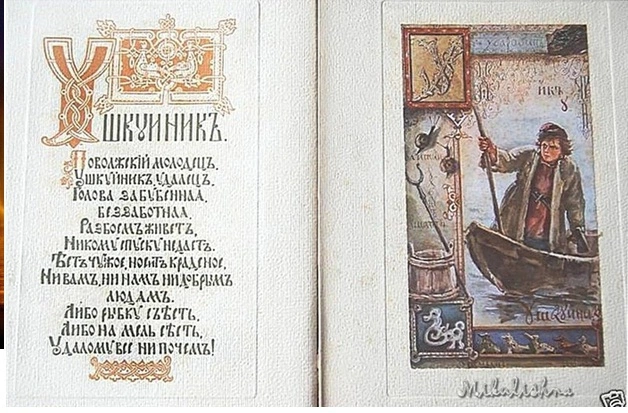 УШКУЙНИКЪ.
Поволжскій молодецъ,
Ушкуйникъ, удалецъ.
Голова забубенная,
беззаботная,
Разбоемъ живетъ,
Никому спуску недастъ.
Ѣстъ чужое, носитъ краденое,
Ни вамъ, ни намъ ни добрымъ
людямъ.
Либо рыбку съѣсть,
Либо на мель сѣсть,
Удалому все ни почемъ!